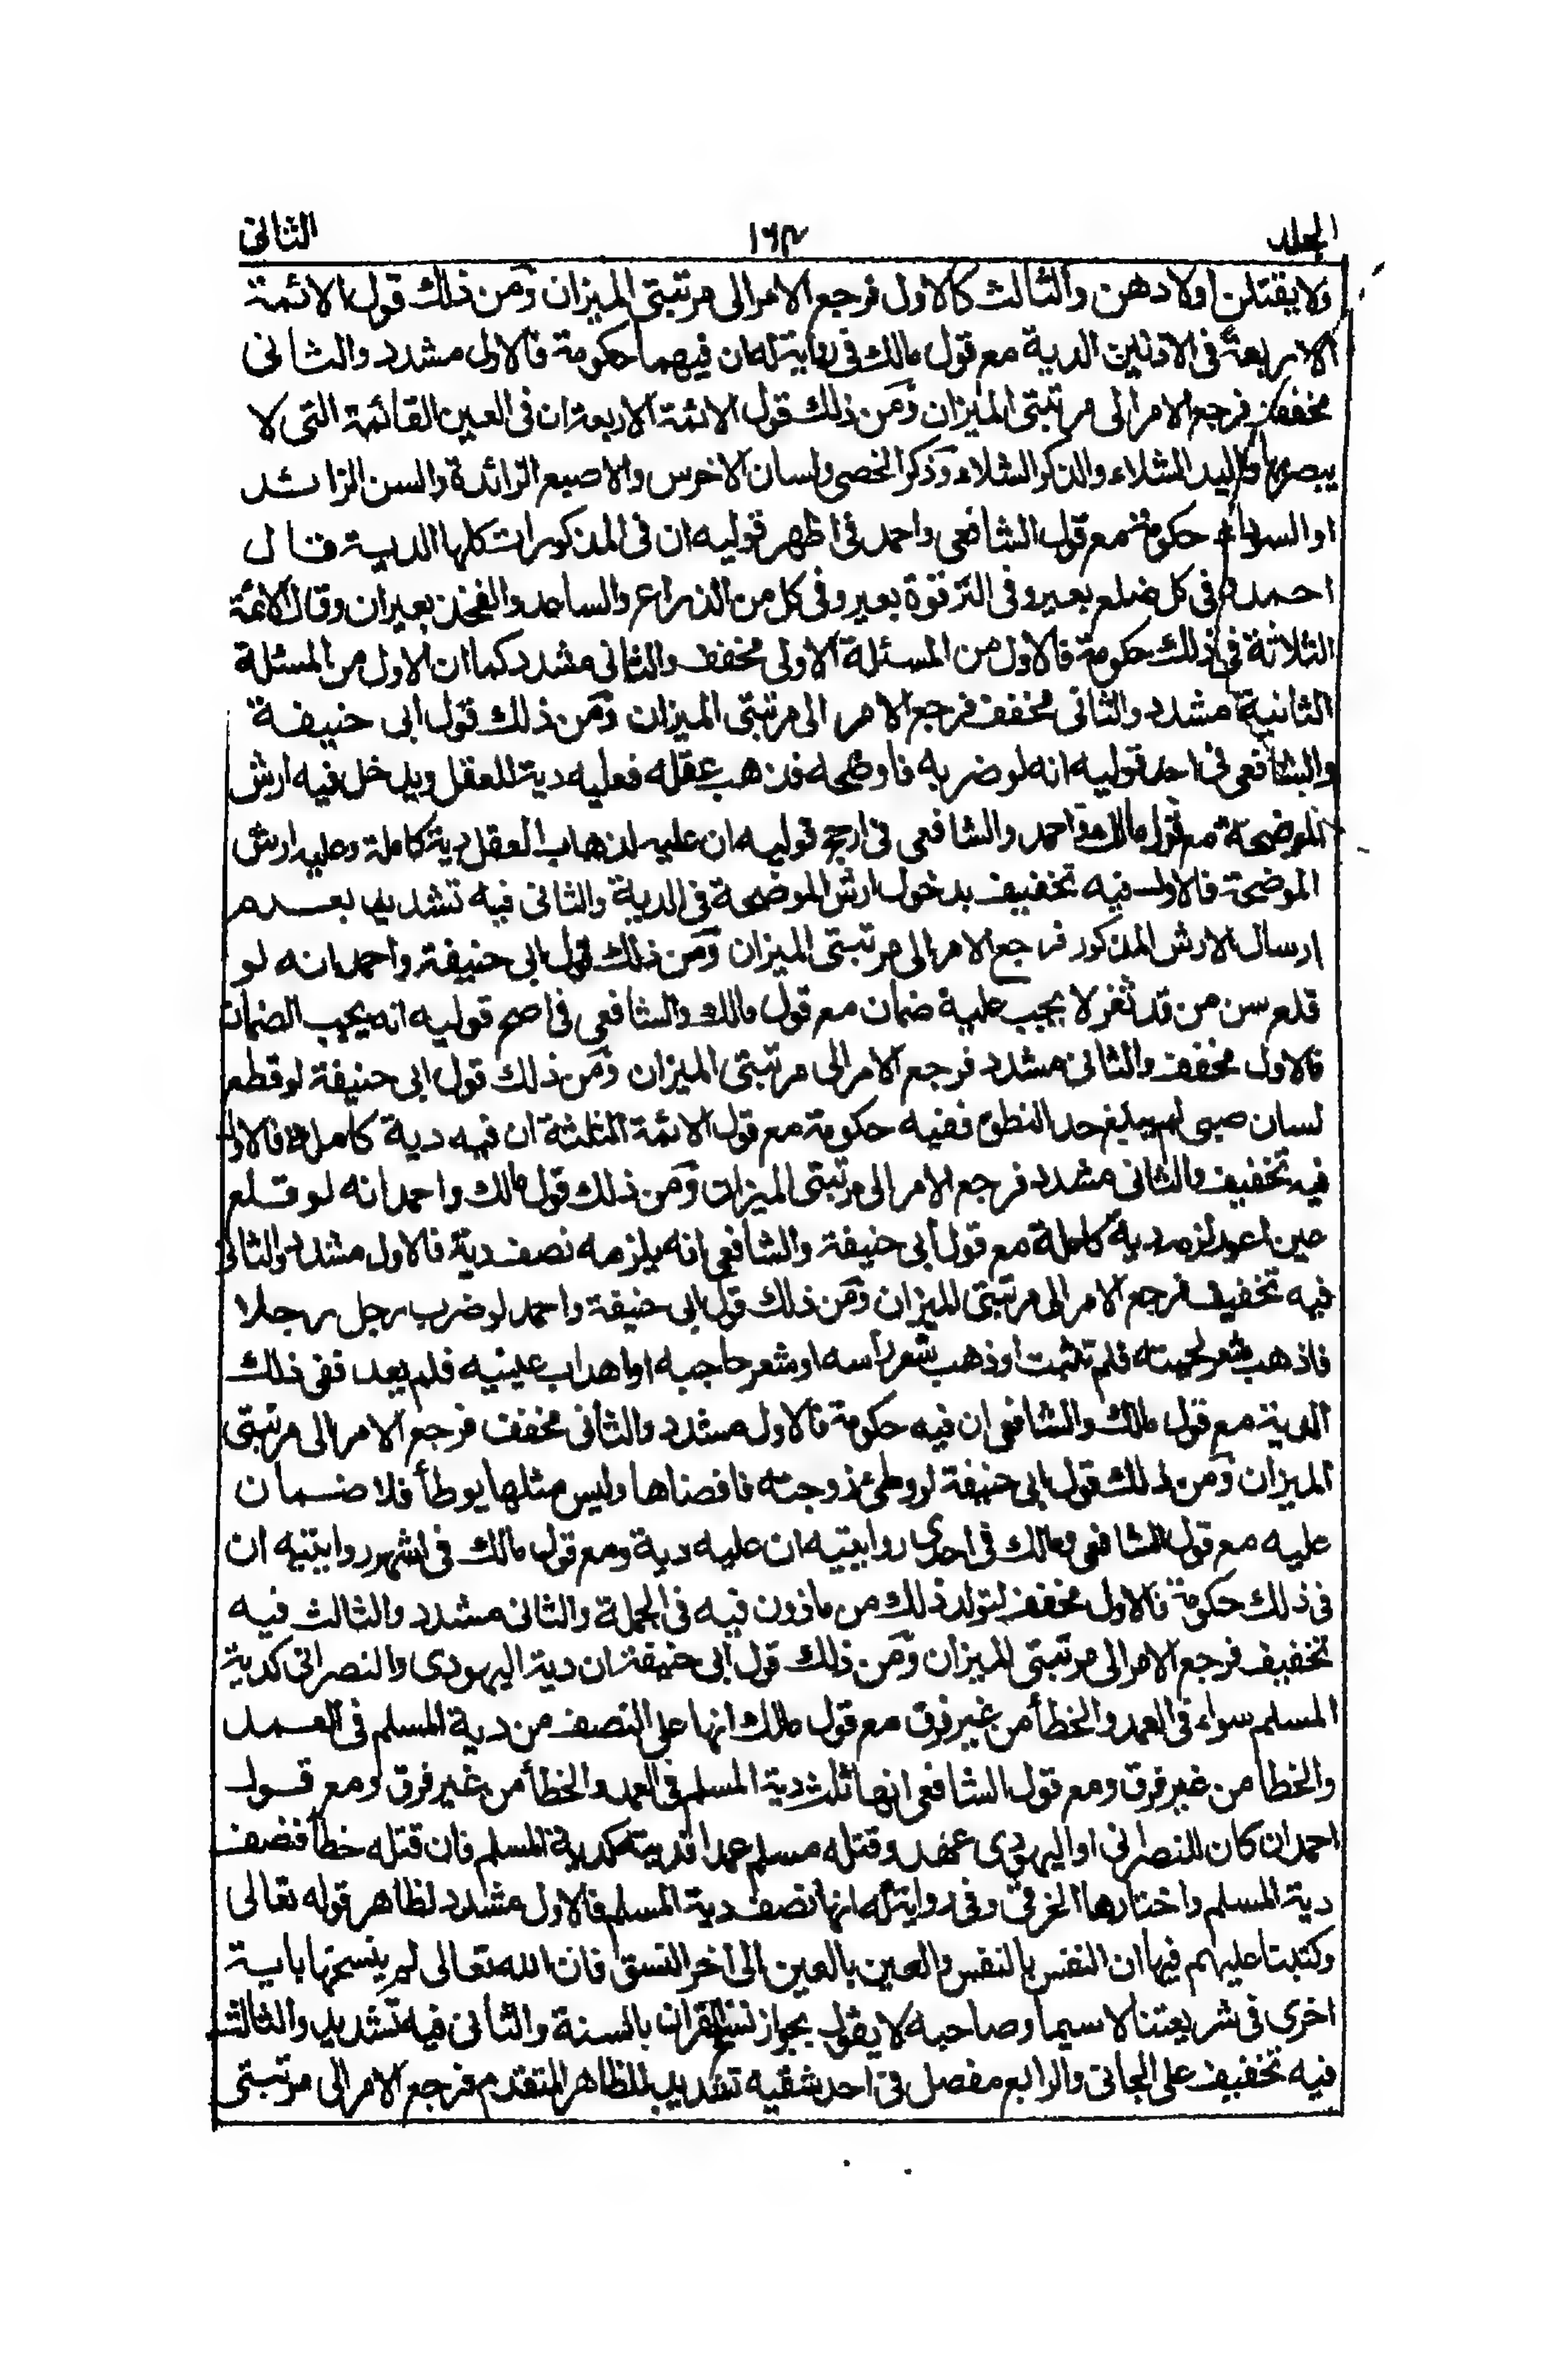 الجلد ١٦٢ الثانى
ولا يقتلن اولادهن والثالث كالاول فرجع الامر الى مرتبتى الميزان ومن ذلك قول الائمة
الاربعة فى الاذنين الدية مع قول مالك فى رواية له ان فيهما حكومة فالاول مشدد والثانى
مخفف فرجع الامر الى مرتبتى الميزان ومن ذلك قول الائمة الاربعة ان فى العين القائمة التى لا
يبصر بها واليد الشلاء والذكر الشلاء وذكر الخصى ولسان الاخرس والاصبع الزائدة والسن الزائد
او السوداء حكومة مع قول الشافعى واحمد فى اظهر قوليه ان فى المذكورات كلها الدية قال
احمد وفى كل ضلع بعير وفى الترقوة بعير وفى كل من الذراع والساعد والفخذ بعيران وقال الائمة
الثلاثة فى ذلك حكومة فالاول من المسئلة الاولى مخفف والثانى مشدد كما ان الاول من المسئلة
الثانية مشدد والثانى مخفف فرجع الامر الى مرتبتى الميزان ومن ذلك قول ابى حنيفة
والشافعى فى احد قوليه انه لو ضربه فاوضحه فذهب عقله فعليه دية للعقل ويدخل فيه ارش
الموضحة مع قول مالك واحمد والشافعى فى ارجح قوليه ان عليه لذهاب العقل دية كاملة وعليه ارش
الموضحة فالاول فيه تخفيف بدخول ارش الموضحة فى الدية والثانى فيه تشديد بعدم
ارسال الارش المذكور فرجع الامر الى مرتبتى الميزان ومن ذلك قول ابى حنيفة واحمد انه لو
قلع سن من قد ثغر لا يجب عليه ضمان مع قول مالك والشافعى فى اصح قوليه انه يجب الضمان
فالاول مخفف والثانى مشدد فرجع الامر الى مرتبتى الميزان ومن ذلك قول ابى حنيفة لو قطع
لسان صبى لم يبلغ حد النطق ففيه حكومة مع قول الائمة الثلثة ان فيه دية كاملة فالاول
فيه تخفيف والثانى مشدد فرجع الامر الى مرتبتى الميزان ومن ذلك قول مالك واحمد انه لو قلع
عين اعور لزمه دية كاملة مع قول ابى حنيفة والشافعى انه يلزمه نصف دية فالاول مشدد والثانى
فيه تخفيف فرجع الامر الى مرتبتى الميزان ومن ذلك قول ابى حنيفة واحمد لو ضرب رجل رجلا
فاذهب شعر لحيته فلم تنبت او ذهب شعر رأسه او شعر حاجبه او اهداب عينيه فلم يعد ففى ذلك
الدية مع قول مالك والشافعى ان فيه حكومة فالاول مشدد والثانى مخفف فرجع الامر الى مرتبتى
الميزان ومن ذلك قول ابى حنيفة لو وطئ زوجته فافضاها وليس مثلها يوطأ فلا ضمان
عليه مع قول الشافعى ومالك فى احدى روايتيه ان عليه دية ومع قول مالك فى اشهر روايتيه ان
فى ذلك حكومة فالاول مخفف لتولد ذلك من ماذون فيه فى الجملة والثانى مشدد والثالث فيه
تخفيف فرجع الامر الى مرتبتى الميزان ومن ذلك قول ابى حنيفة ان دية اليهودى والنصرانى كدية
المسلم سواء فى العمد والخطأ من غير فرق مع قول مالك انها على النصف من دية المسلم فى العمد
والخطا من غير فرق ومع قول الشافعى انها ثلث دية المسلم فى العمد والخطأ من غير فرق ومع قول
احمد ان كان النصرانى او اليهودى عهد وقتله مسلم عمدا فديته كدية المسلم فان قتله خطأ فنصف
دية المسلم واختارها الخرقى وفى رواية له انها نصف دية المسلم فالاول مشدد لظاهر قوله تعالى
وكتبنا عليهم فيها ان النفس بالنفس والعين بالعين الى اخر النسق فان الله تعالى لم ينسخها باية
اخرى فى شريعتنا لا سيما وصاحبه لا يقول بجواز نسخ القران بالسنة والثانى فيه تشديد والثالث
فيه تخفيف على الجانى والرابع مفصل فى احد شقيه تشديد للظاهر المتقدم فرجع الامر الى مرتبتى